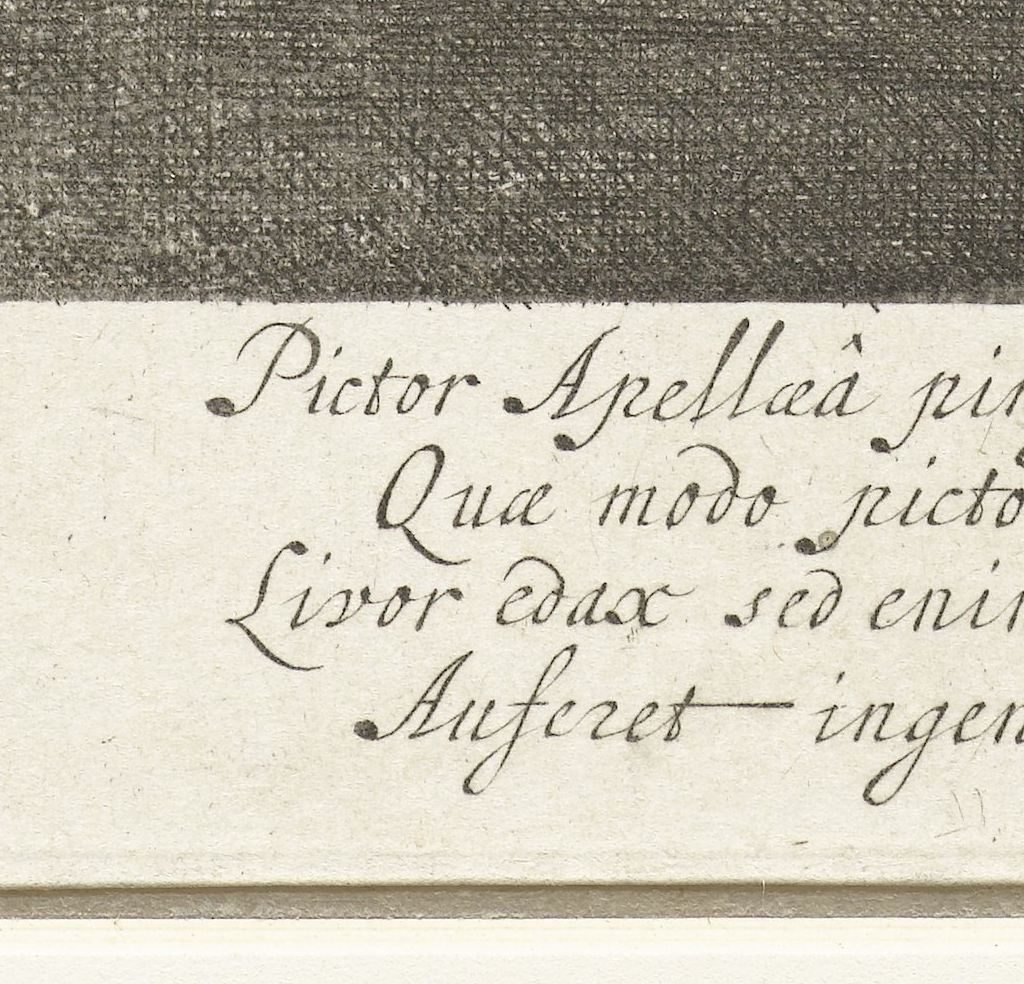 Pictor Apellæâ pin
Quæ modo picto
Livor edax sed enim
Auferet ingen